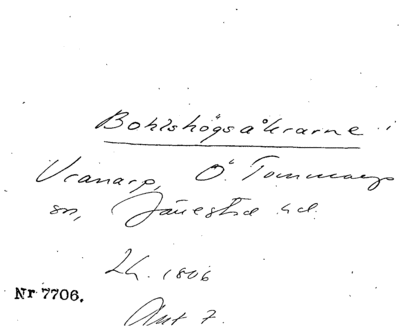 Bohlshögsåkrarne i
Vranarp, Ö. Tommarps
sn, Järrestad hd.
Lh. 1806
Nr 7706.
Akt 7.